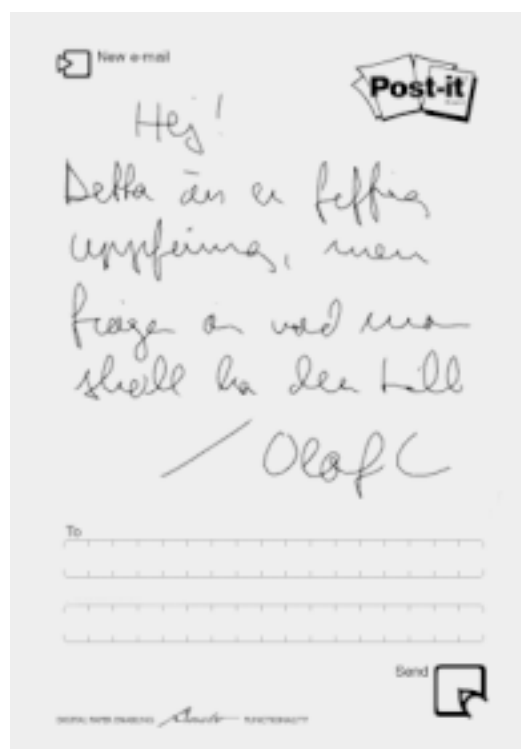 New e-mail
Post-it
Hej!
Detta är en häftig
uppfinning, men
frågan är vad man
skall ha den till
/ Olof C
To
Send
DIGITAL PAPER ENABLING FUNCTIONALITY